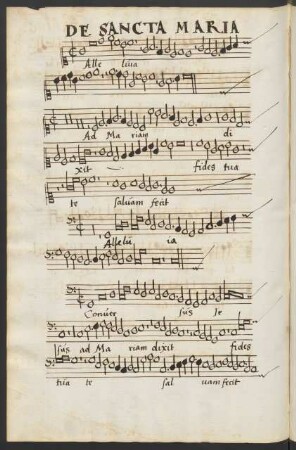 DE SANCTA MARIA
Alle luia
Ad Ma riam di
xit fides tua
te saluam fecit
Allelu ia
Conuer sus Ie
sus ad Ma riam dixit fides
tua te sal uam fecit